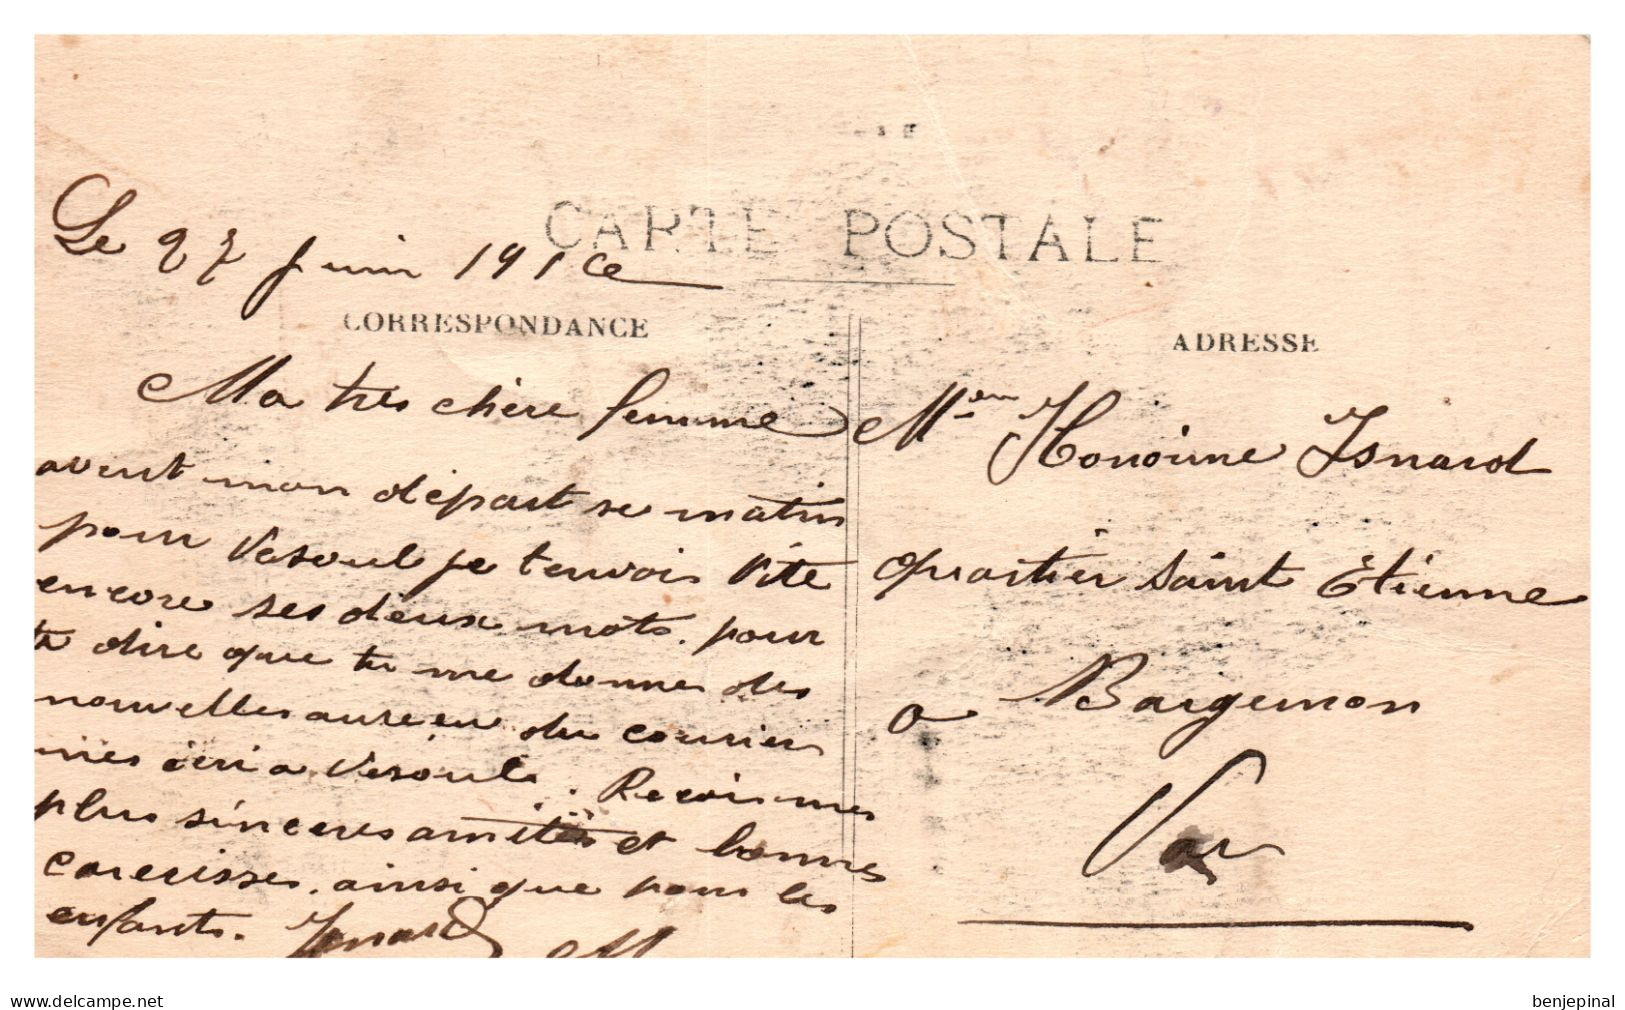 CARTE POSTALE
Le 27 Juin 191
CORRESPONDANCE
Ma tres chère femme
avent mon départ se matin
pour Vesoul je t'envois vite
encore ses deux mots. pour
te dire que tu me donnes des
nouvelles du courier
a Vesoul. Recois mes
plus sinceres amitiés et bonnes
caresisses. ainsi que pour les
enfants. Isnard M
ADRESSE
Mme Honorine Isnard
quartier Saint Etienne
a Bargemon
Var
delcampe.net
benjepinal